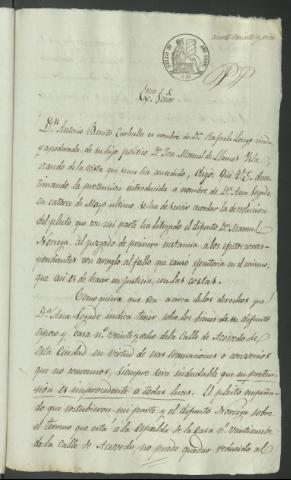 Exmo. Señor
Dn. Antonio Benito Carballo en nombre de Da. Rafaela Longo viuda
y apoderada de su hijo politico Dn. Jose Manuel de Llamos Vila
usando de la vista que se me ha concedido, digo: Que V.E. deses-
timando la pretension introducida a nombre de Da. Ana Seijide
en catorce de Mayo ultimo, se ha de servir acordar la devolucion
del pleito, que con mi parte ha litigado el difunto Dn. Manuel
Noriega, al juzgado de primera instancia a los efectos corres-
pondientes con arreglo al fallo que causó egecutoria en el mismo,
que asi es de hacer en justicia, con las costas.
Como quiera que sea acerca de los derechos que
Da. Ana Seijide indica tener sobre los bienes de su difunto
esposo y casa no. veinte y ocho de la Calle de Acevedo de
esta Ciudad en virtud de sus transaciones o convenios
que no conocemos, siempre será indudable que su preten-
sion es improcedente a todas luces. El pleito empeña-
do que sostubieron mi parte y el difunto Noriega sobre
el terreno que está á la espalda de la casa no. veintinueve
de la Calle de Acevedo no puede quedar reducido al